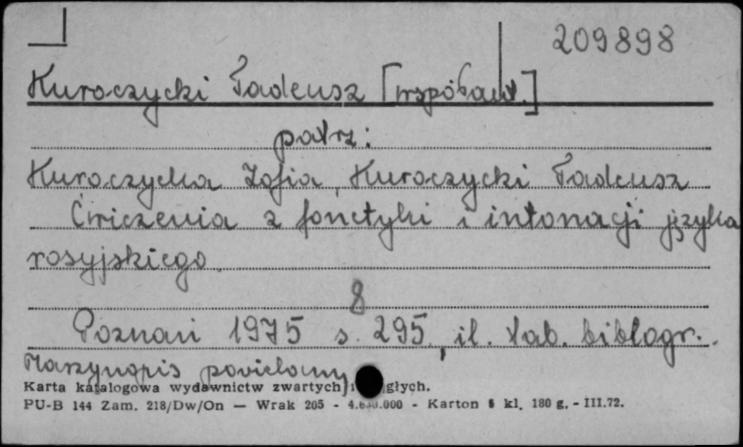 209898
Kuroczycki Tadeusz [współaut.]
patrz:
Kuroczycka Zofia, Kuroczycki Tadeusz
Ćwiczenia z fonetyki i intonacji języka
rosyjskiego.
8
Poznań 1975 s. 295, il. tab. bibliogr.
Maszynopis powielany
Karta katalogowa wydawnictw zwartych i głych.
PU-B 144 Zam. 218/Dw/On — Wrak 205 - .000 - Karton kl. 180 g. - III.72.